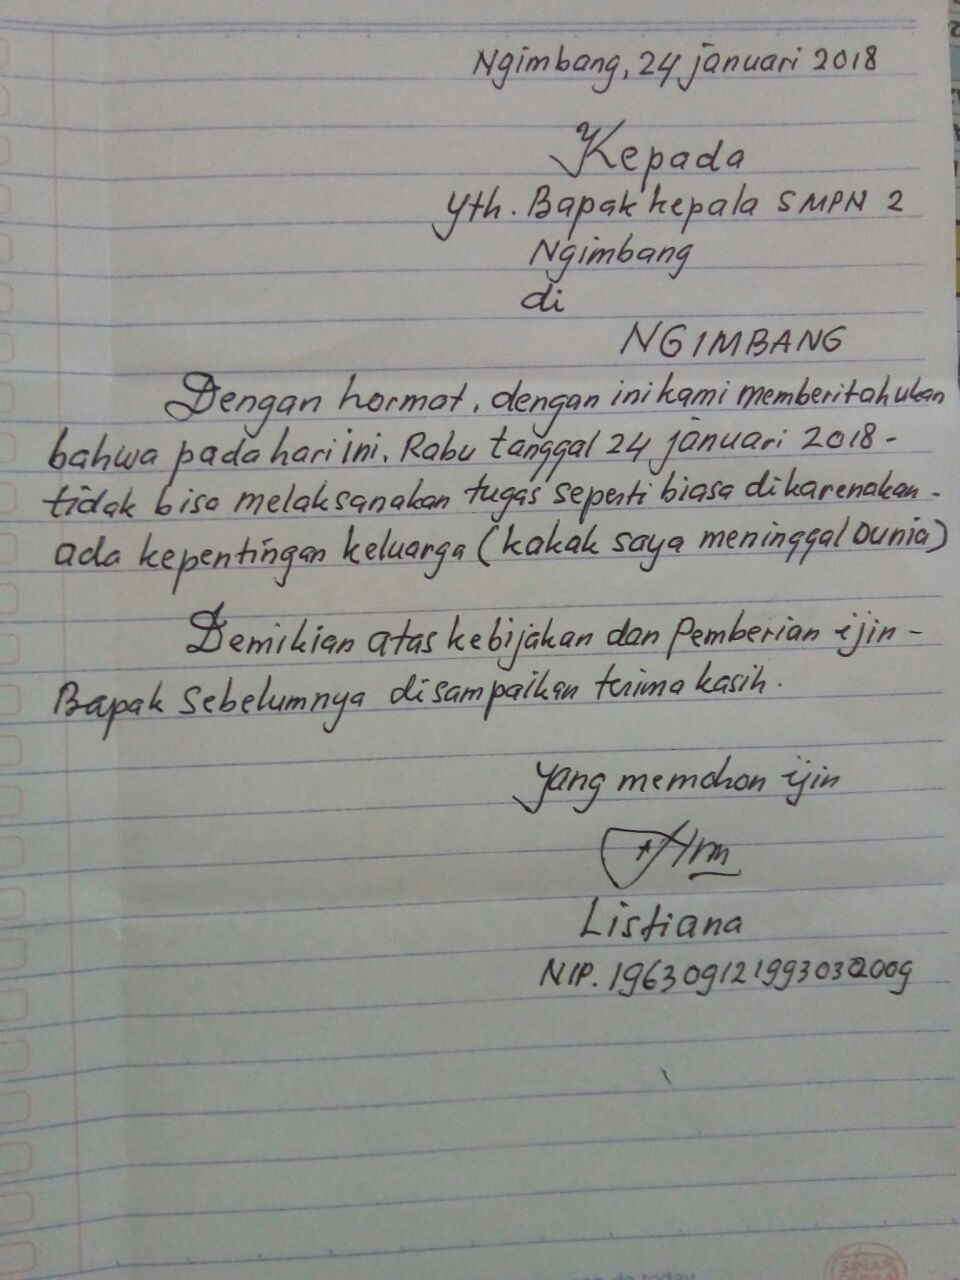 Ngimbang, 24 januari 2018
Kepada
Yth. Bapak kepala SMPN 2
Ngimbang
di
NGIMBANG
Dengan hormat, dengan ini kami memberitahukan
bahwa pada hari ini. Rabu tanggal 24 januari 2018 -
tidak bisa melaksanakan tugas seperti biasa dikarenakan -
ada kepentingan keluarga (kakak saya meninggal Dunia)
Demikian atas kebijakan dan Pemberian ijin -
Bapak Sebelumnya disampaikan terima kasih.
yang memohon ijin
Listiana
NIP. 196309121993032009
SINAR